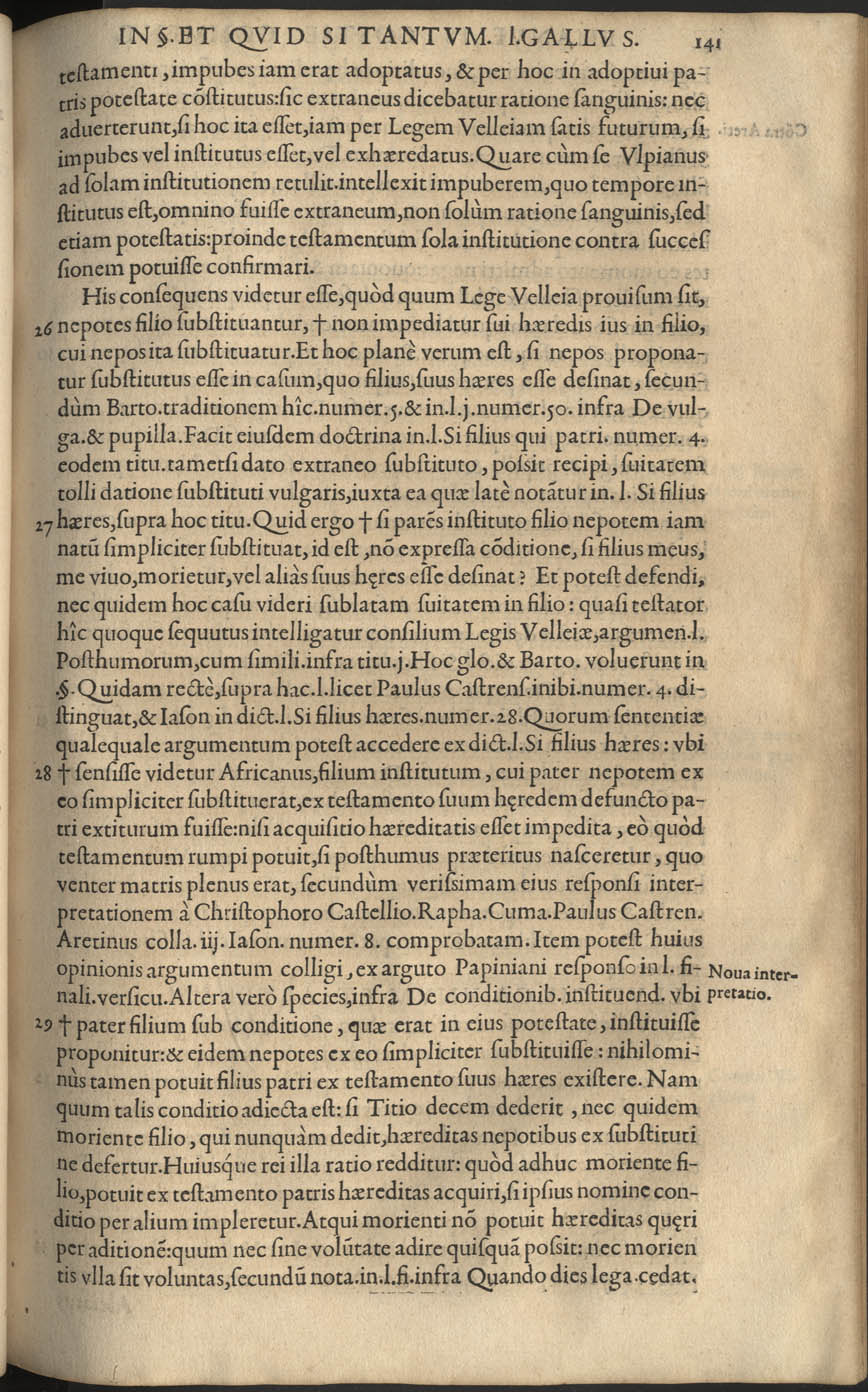 IN §. ET QVID SI TANTVM. l. GALLVS. 141
teſtamenti, impubes iam erat adoptatus, & per hoc in adoptiui pa-
tris poteſtate cõſtitutus: ſic extraneus dicebatur ratione ſanguinis: nec
aduerterunt, ſi hoc ita eſſet, iam per Legem Velleiam ſatis futurum, ſi
impubes vel inſtitutus eſſet, vel exhæredatus. Quare cùm ſe Vlpianus
ad ſolam inſtitutionem retulit. intellexit impuberem, quo tempore in-
ſtitutus eſt, omnino fuiſſe extraneum, non ſolùm ratione ſanguinis, ſed
etiam poteſtatis: proinde teſtamentum ſola inſtitutione contra succeſ
ſionem potuiſſe confirmari.
His conſequens videtur eſſe, quòd quum Lege Velleia prouiſum ſit,
26 nepotes filio ſubſtituantur, † non impediatur ſui hæredis ius in filio,
cui nepos ita ſubſtituatur. Et hoc planè verum eſt, ſi nepos propona-
tur ſubſtitutus eſſe in caſum, quo filius, ſuus hæres eſſe deſinat, ſecun-
dùm Barto. traditionem hîc. numer. 5. & in. l. j. numer. 50. infra De vul-
ga. & pupilla. Facit eiuſdem doctrina in. l. Si filius qui patri. numer. 4.
eodem titu. tametſi dato extraneo ſubſtituto, poſsit recipi, ſuitatem
tolli datione ſubſtituti vulgaris, iuxta ea quæ latè notãtur in. l. Si filius
27 hæres, ſupra hoc titu. Quid ergo † ſi parẽs inſtituto filio nepotem iam
natũ ſimpliciter ſubſtituat, id eſt, nõ expreſſa cõditione, ſi filius meus,
me viuo, morietur, vel aliàs ſuus hęres eſſe deſinat? Et poteſt defendi,
nec quidem hoc caſu videri ſublatam ſuitatem in filio: quaſi teſtator
hîc quoque ſequutus intelligatur conſilium Legis Velleiæ, argumen. l.
Poſthumorum, cum ſimili. infra titu. j. Hoc glo. & Barto. voluerunt in
.§. Quidam rectè, ſupra hac. l. licet Paulus Caſtrenſ. inibi. numer. 4. di-
ſtinguat, & Iaſon in dict. l. Si filius hæres. numer. 28. Quorum ſententiæ
qualequale argumentum poteſt accedere ex dict. l. Si filius hæres: vbi
28 † ſenſiſſe videtur Africanus, filium inſtitutum, cui pater nepotem ex
eo ſimpliciter ſubſtituerat, ex teſtamento ſuum hęredem defuncto pa-
tri extiturum fuiſſe: niſi acquiſitio hæreditatis eſſet impedita, eò quòd
teſtamentum rumpi potuit, ſi poſthumus præteritus naſceretur, quo
venter matris plenus erat, ſecundùm veriſsimam eius reſponſi inter-
pretationem à Chriſtophoro Caſtellio. Rapha. Cuma. Paulus Caſtren.
Aretinus colla. iij. Iaſon. numer. 8. comprobatam. Item poteſt huius
opinionis argumentum colligi, ex arguto Papiniani reſponſo in l. fi- Noua inter-
nali. verſicu. Altera verò ſpecies, infra De conditionib. inſtituend. vbi pretatio.
29 † pater filium ſub conditione, quæ erat in eius poteſtate, inſtituiſſe
proponitur: & eidem nepotes ex eo ſimpliciter ſubſtituiſſe: nihilomi-
nùs tamen potuit filius patri ex teſtamento ſuus hæres exiſtere. Nam
quum talis conditio adiecta eſt: ſi Titio decem dederit, nec quidem
moriente filio, qui nunquàm dedit, hæreditas nepotibus ex ſubſtituti
ne defertur. Huiusq́ue rei illa ratio redditur: quòd adhuc moriente fi-
lio, potuit ex teſtamento patris hæreditas acquiri, ſi ipſius nomine con-
ditio per alium impleretur. Atqui morienti nõ potuit hæreditas quęri
per aditionẽ: quum nec ſine volũtate adire quiſquã poſsit: nec morien
tis vlla ſit voluntas, ſecundũ nota. in. l. fi. infra Quando dies lega. cędat.